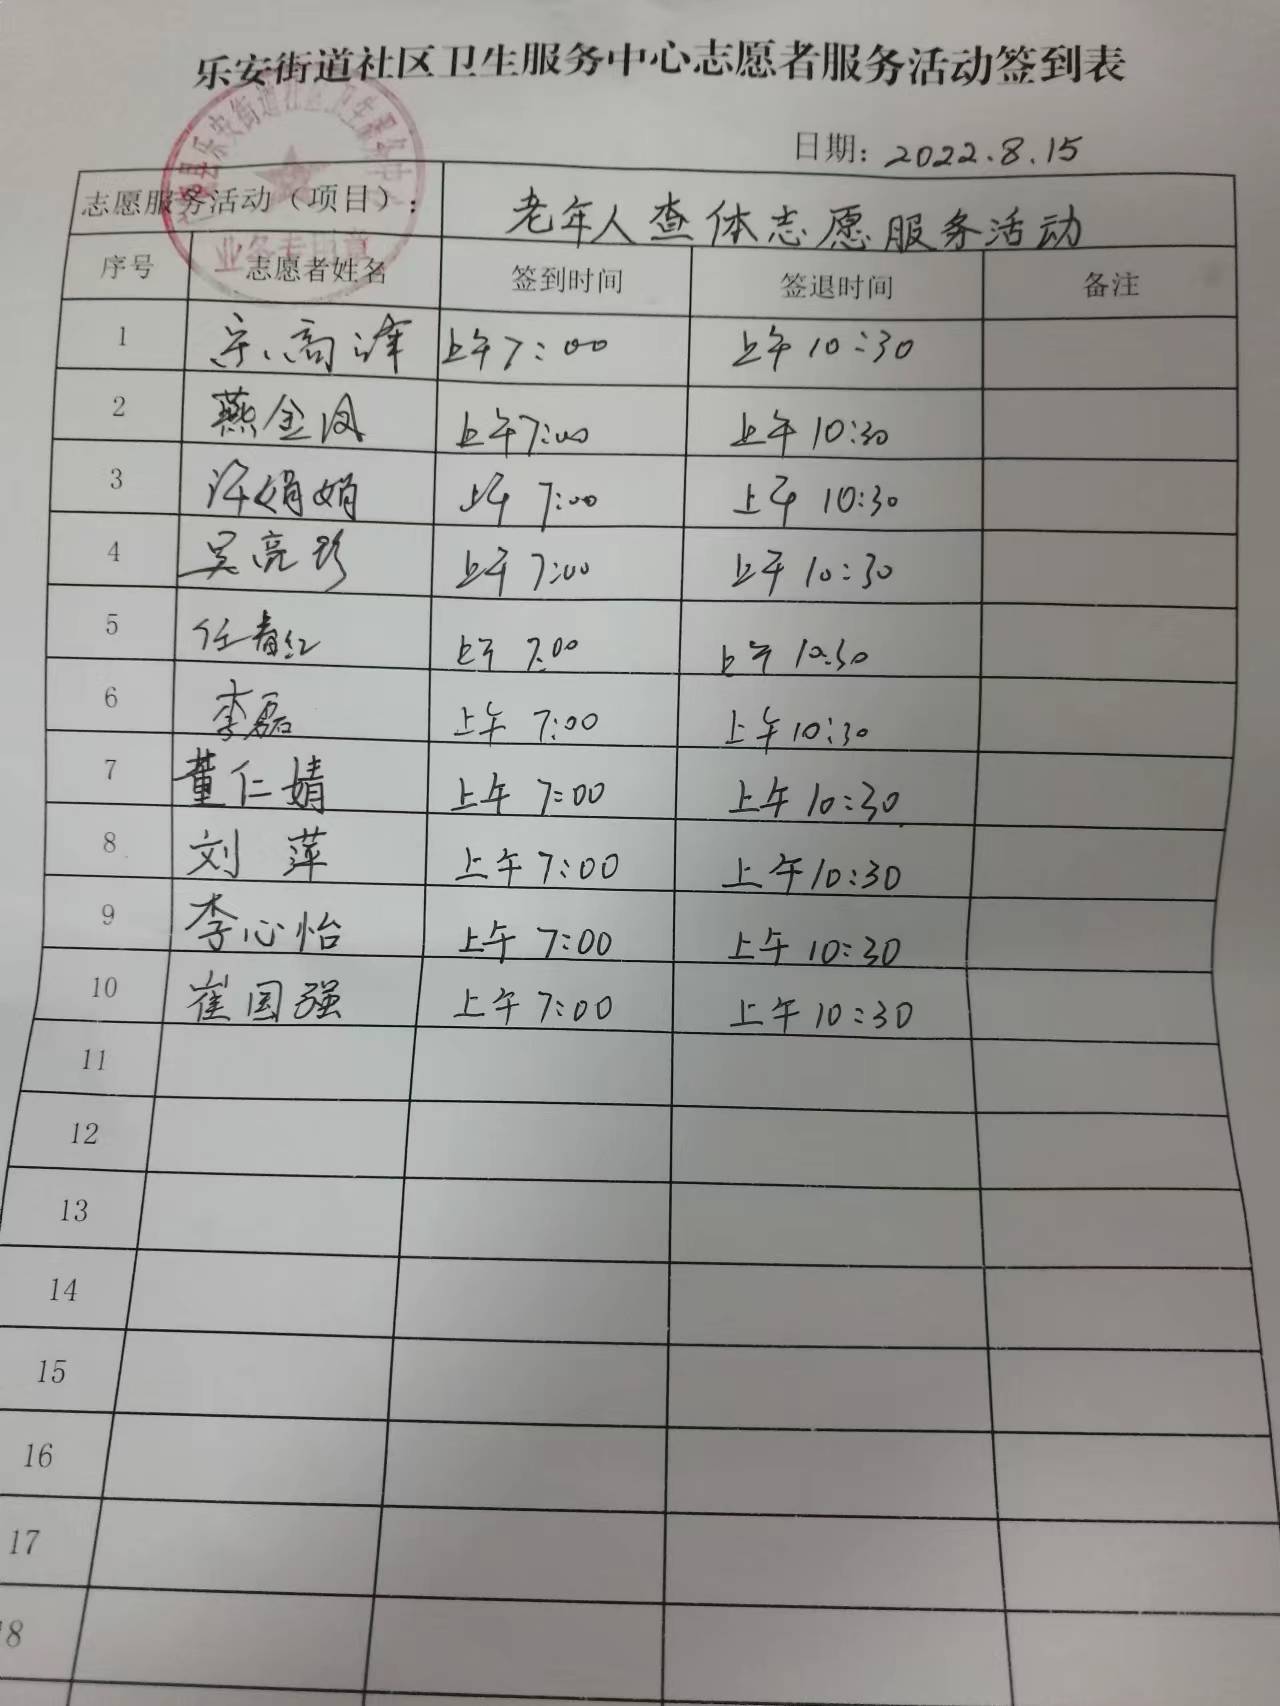 乐安街道社区卫生服务中心志愿者服务活动签到表
日期：2022.8.15
志愿服务活动（项目）： 老年人查体志愿服务活动
序号 志愿者姓名 签到时间 签退时间 备注
1 上午7:00 上午10:30
2 燕金凤 上午7:00 上午10:30
3 许娟娟 上午7:00 上午10:30
4 吴亮 上午7:00 上午10:30
5 任春红 上午7:00 上午10:30
6 李磊 上午7:00 上午10:30
7 董仁婧 上午7:00 上午10:30
8 刘萍 上午7:00 上午10:30
9 李心怡 上午7:00 上午10:30
10 崔国强 上午7:00 上午10:30
11
12
13
14
15
16
17
18
乐安街道社区卫生服务中心
业务专用章